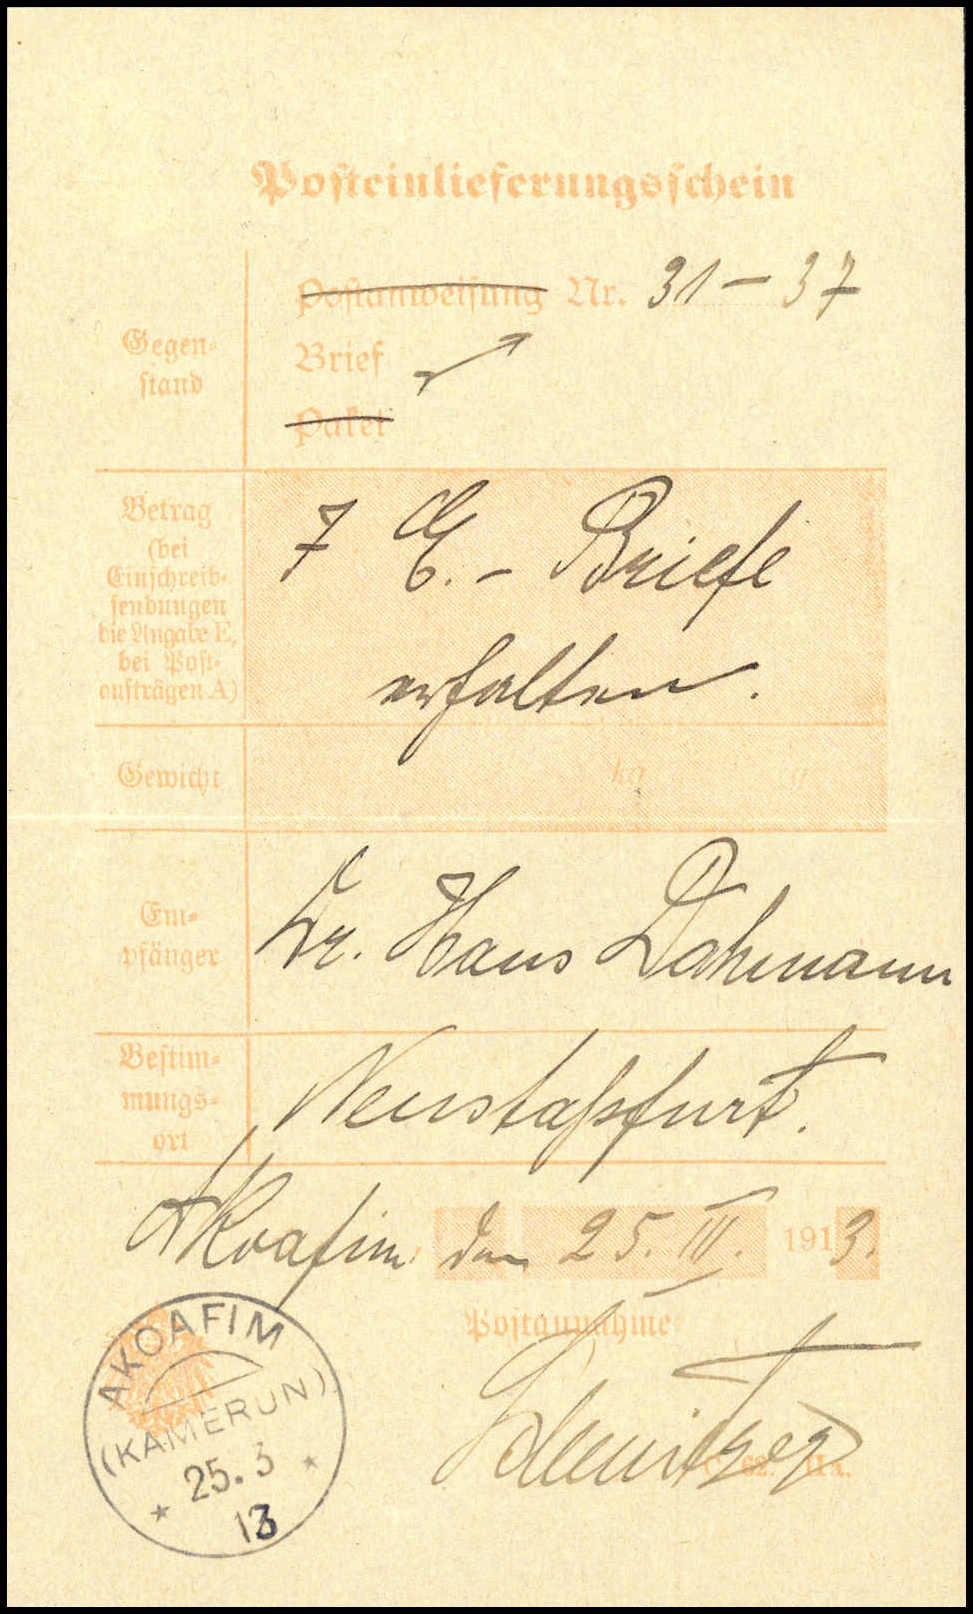 Posteinlieferungsschein
Gegen-
stand
Postanweisung Nr. 31 – 37
Brief
Paket
Betrag
(bei
Einschreib-
sendungen
die Angabe E,
bei Post-
aufträgen A)
7 E. - Briefe
erhalten.
Gewicht
kg g
Em-
pfänger
Dr. Hans Dahmann
Bestim-
mungs-
ort
Neustaßfurt.
Akoafim, den 25. III. 1913.
Postannahme
C. 62. IIa.
AKOAFIM
(KAMERUN)
25. 3
* *
13